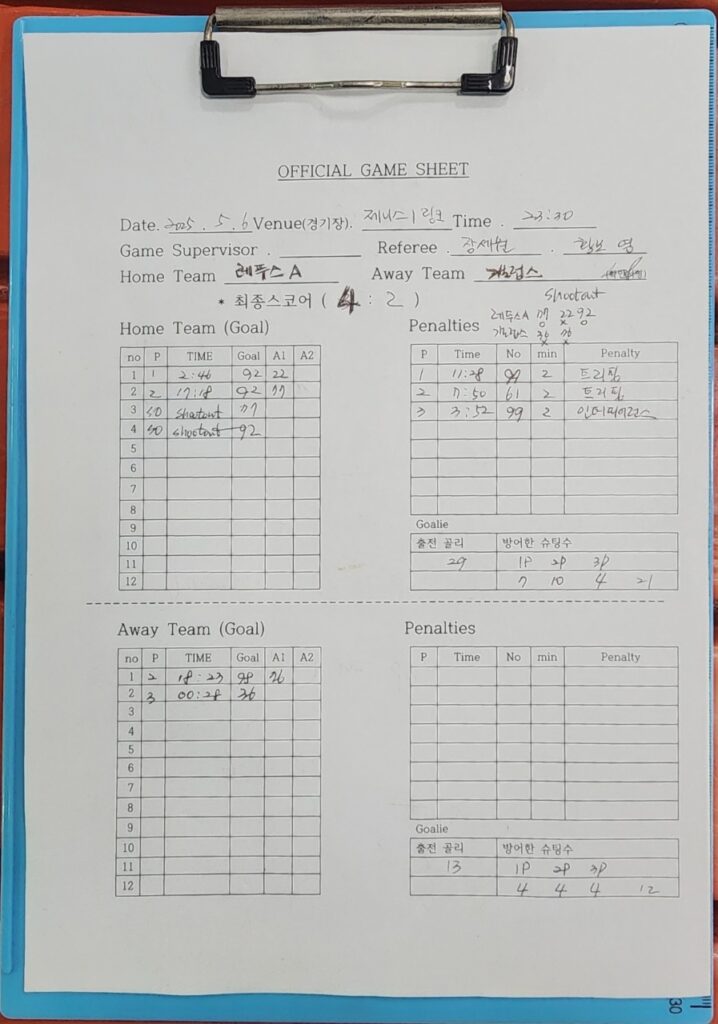 OFFICIAL GAME SHEET
Date. 2025 . 5 . 6 Venue(경기장). 제니스 1 링크 Time . 23:30
Game Supervisor . Referee .
Home Team 레푸스 A Away Team 갤럽스
* 최종스코어 ( 4 : 2 ) Shootout
레푸스A 77 22 92
갤럽스 36 76
Home Team (Goal) Penalties
no P TIME Goal A1 A2
1 1 2:46 92 22
2 2 17:18 92 77
3 SO shootout 77
4 SO shootout 92
5
6
7
8
9
10
11
12
P Time No min Penalty
1 11:28 99 2 트리핑
2 7:50 61 2 트리핑
3 3:52 99 2 인터피어런스
Goalie
출전 골리 방어한 슈팅수
29 1P 2P 3P
7 10 4 21
Away Team (Goal) Penalties
no P TIME Goal A1 A2
1 2 18:23 98 76
2 3 00:28 36
3
4
5
6
7
8
9
10
11
12
P Time No min Penalty
Goalie
출전 골리 방어한 슈팅수
13 1P 2P 3P
4 4 4 12
30